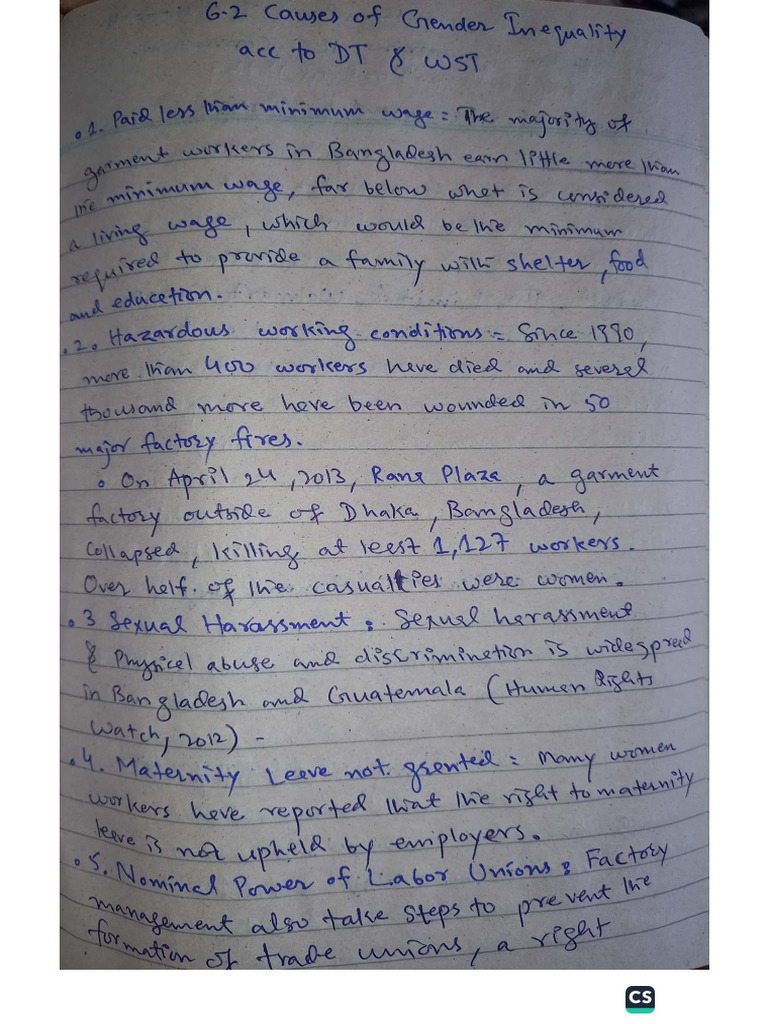 6.2 Causes of Gender Inequality
acc to DT & WST
• 1. Paid less than minimum wage: The majority of
garment workers in Bangladesh earn little more than
the minimum wage, far below what is considered
a living wage, which would be the minimum
required to provide a family with shelter, food
and education.
• 2. Hazardous working conditions: Since 1990,
more than 400 workers have died and several
thousand more have been wounded in 50
major factory fires.
• On April 24, 2013, Rana Plaza, a garment
factory outside of Dhaka, Bangladesh,
collapsed, killing at least 1,127 workers.
Over half of the casualties were women.
• 3 Sexual Harassment: Sexual harassment
& Physical abuse and discrimination is widespread
in Bangladesh and Guatemala (Human Rights
Watch, 2012) -
• 4. Maternity Leave not granted: Many women
workers have reported that the right to maternity
leave is not upheld by employers.
• 5. Nominal Power of Labor Unions: Factory
management also take steps to prevent the
formation of trade unions, a right
CS